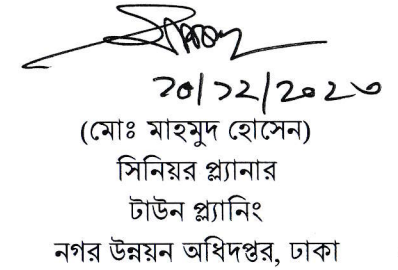 (মোঃ মাহমুদ হোসেন)
সিনিয়র প্ল্যানার
টাউন প্ল্যানিং
নগর উন্নয়ন অধিদপ্তর, ঢাকা